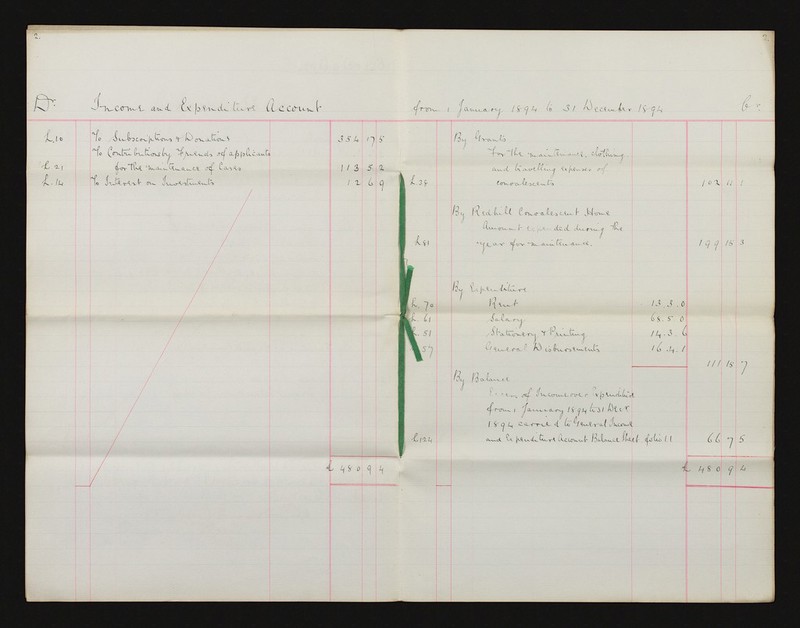 2.
Dr. Income and Expenditure Account
L10 To Subscriptions & Donations 354 17 5
To Contributions by Friends of applicants
L.21 for the maintenance of Cases 113 5 2
L.14 To Interest on Investments 12 6 9
£ 480 9 4
from 1 January 1894 to 31 December 1894 Cr.
By Grants
For the maintenance, clothing
and travelling expenses of
L.34 convalescents 102 11 1
By Redhill Convalescent Home
Amount expended during the
L41 year for maintenance. 199 18 3
By Expenditure
L. 70 Rent 13.3.0
L. 61 Salary 68.5.0
51 Stationery & Printing 14.3.6
57 General Disbursements 16.4.1
111 18 7
By Balance
Excess of Income over Expenditure
from 1 January 1894 to 31 Decr
1894 carried to General Income
L124 and Expenditure Account Balance Sheet folio 11 66 7 5
£ 480 9 4